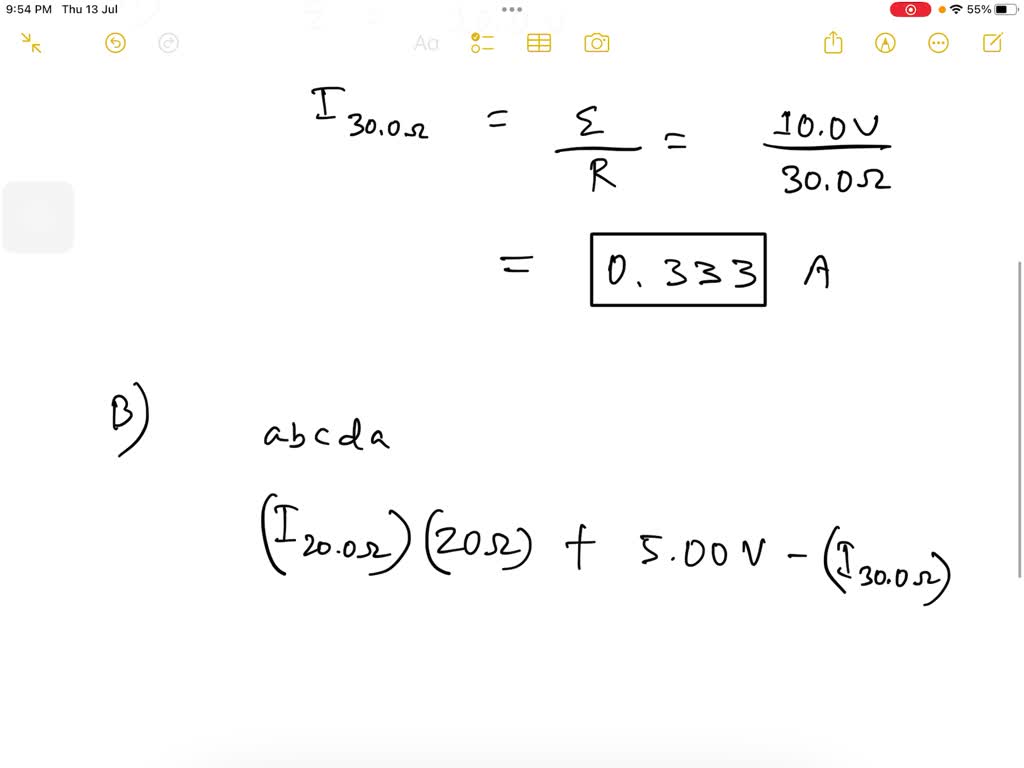 9:54 PM Thu 13 Jul 55%
Aa
I 30.0Ω = Ɛ / R = 10.0V / 30.0Ω
= 0.333 A
B)
abcda
(I 20.0Ω)(20Ω) + 5.00 V - (I 30.0Ω)